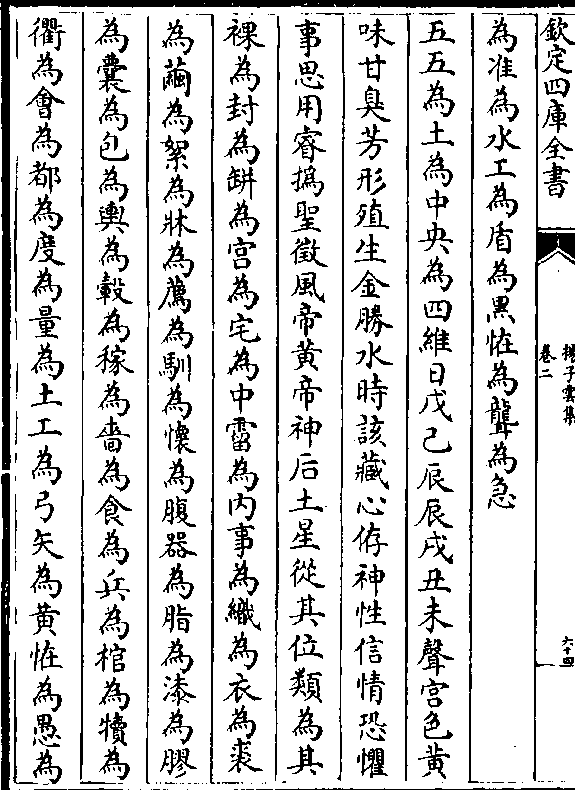 欽定四庫全書
揚子雲集
卷二
六十四
為准為水工為盾為黑恠為聾為急
五五為土為中央為四維日戊己辰辰戌丑未聲宫色黄
味甘臭芳形殖生金勝水時該藏心侟神性信情恐懼
事思用睿撝聖徵風帝黄帝神后土星從其位類為其
裸為封為缾為宫為宅為中霤為内事為織為衣為裘
為繭為絮為牀為薦為馴為懐為腹器為脂為漆為膠
為囊為包為輿為轂為稼為嗇為食為㐳為棺為犢為
衢為會為都為度為量為土工為弓矢為黄恠為愚為